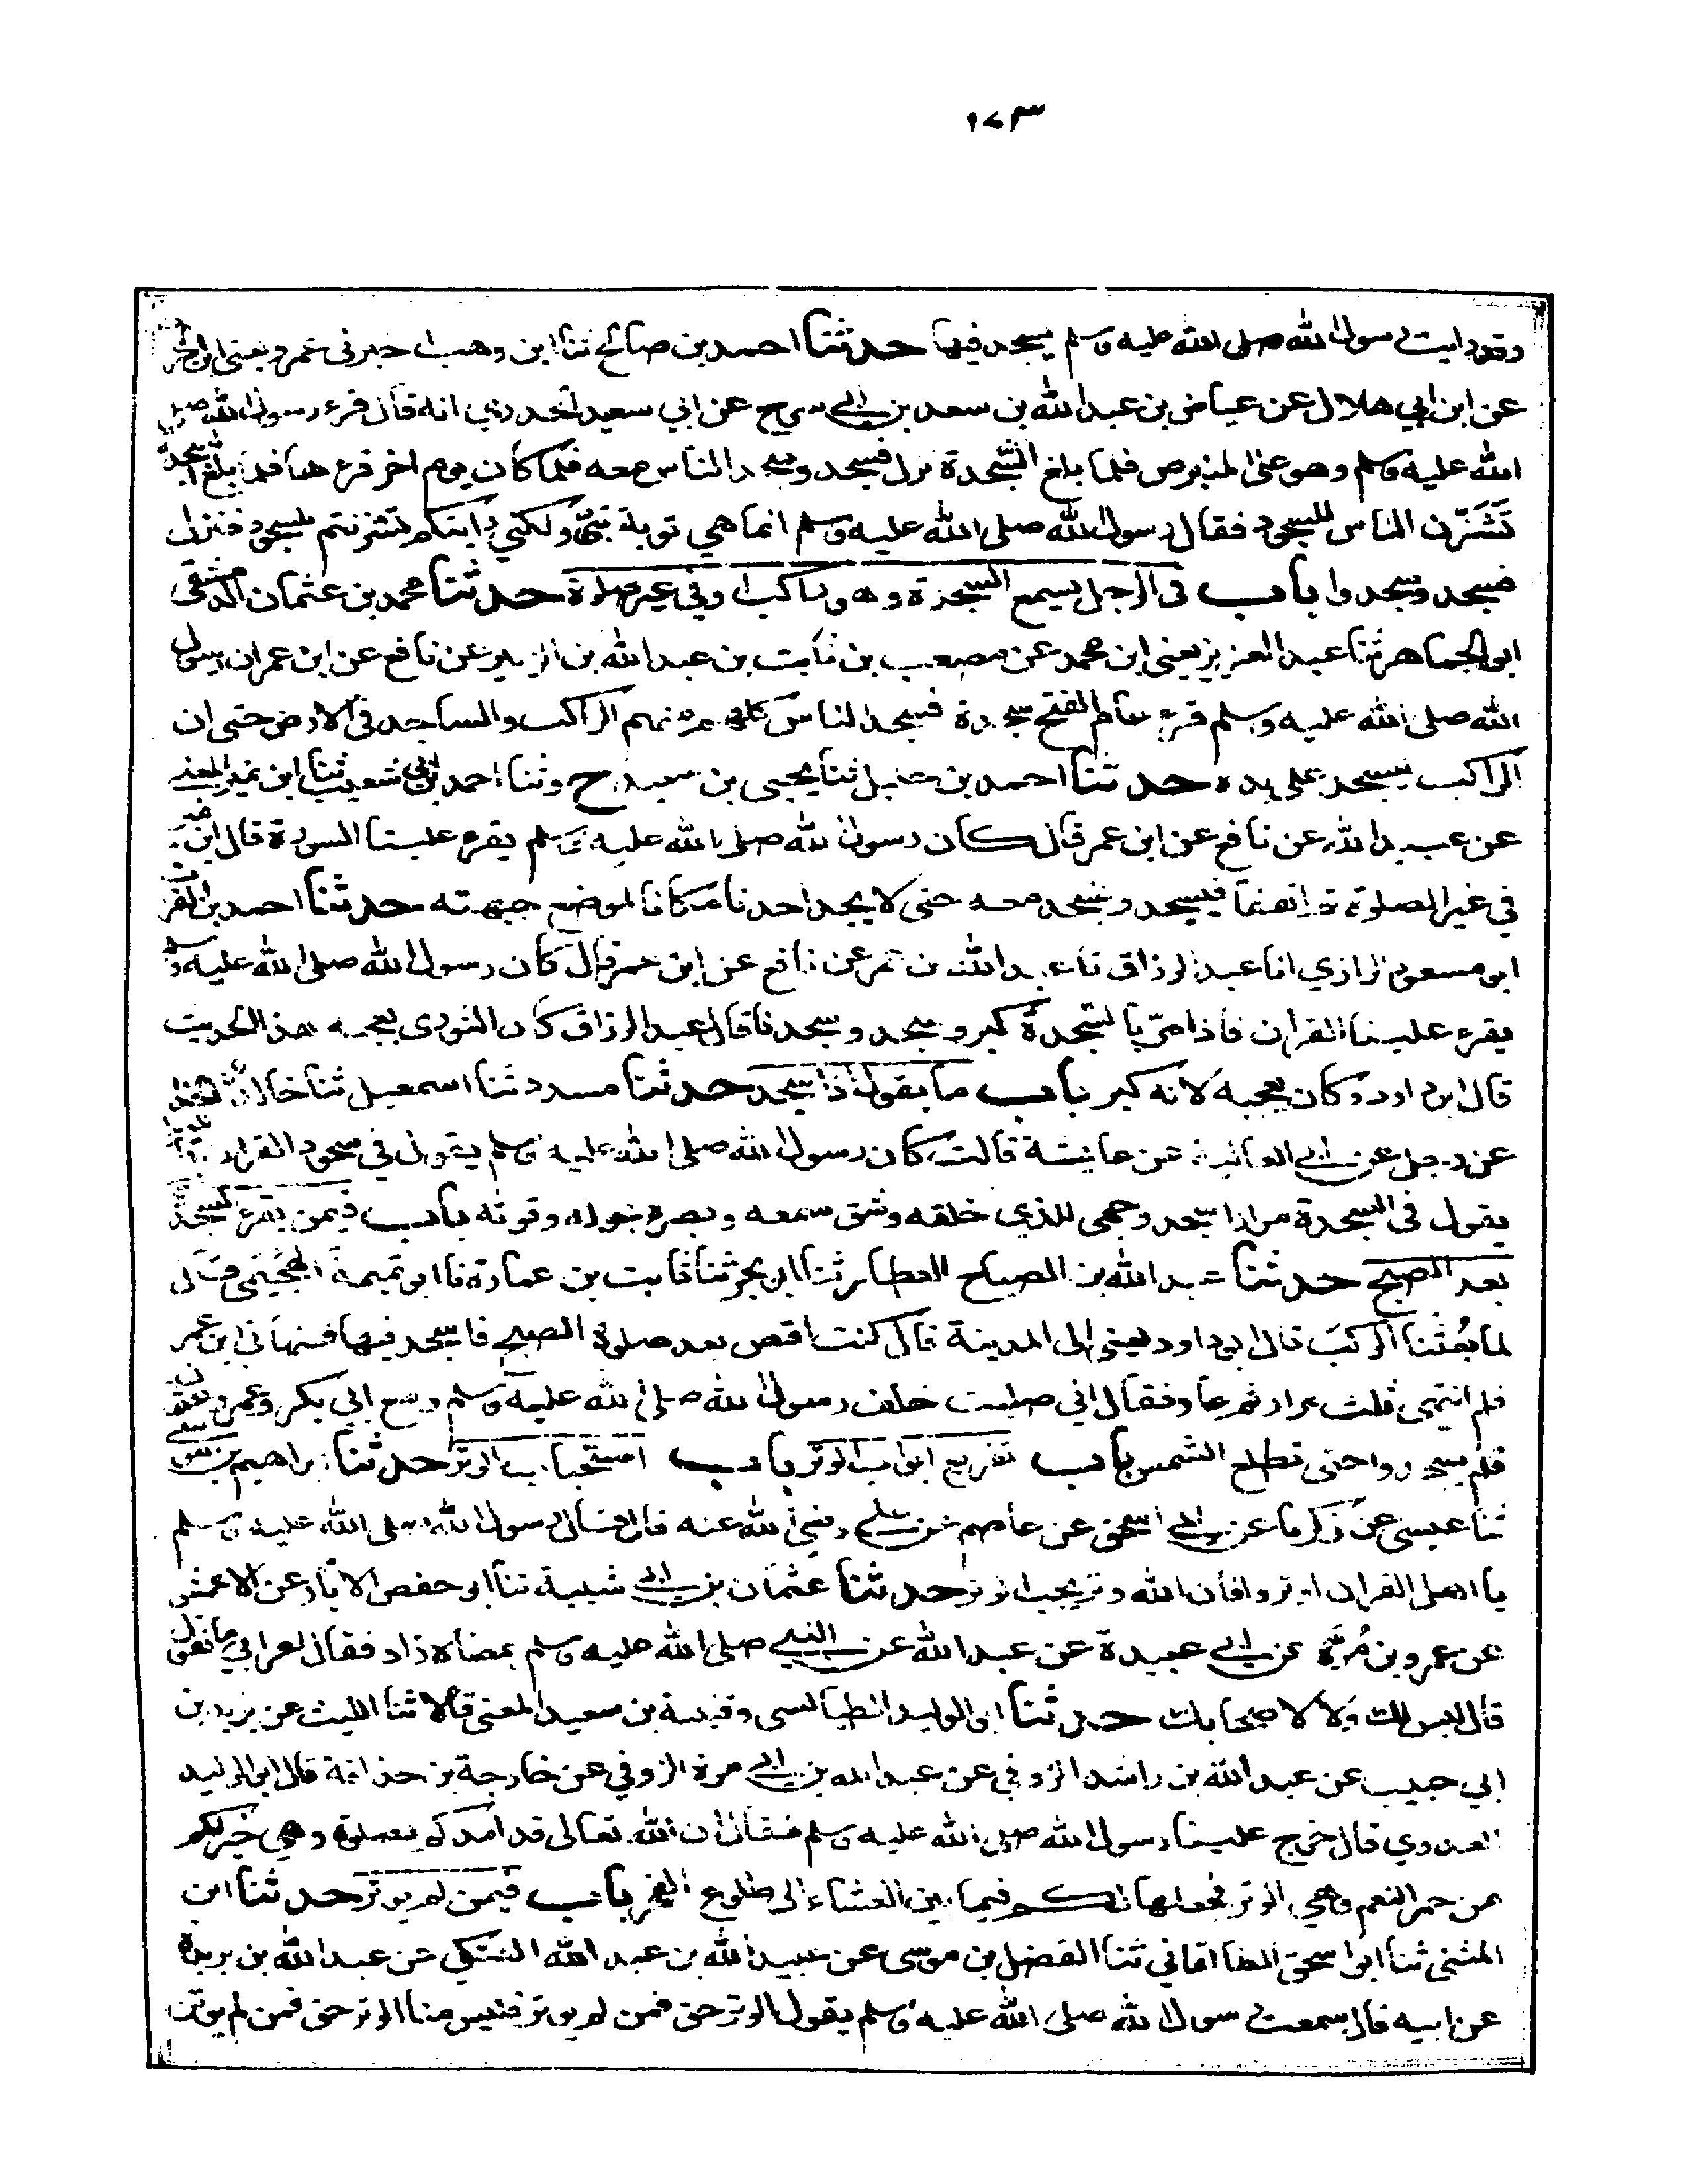 ١٧٣
وقد رايت رسول الله صلى الله عليه وسلم يسجد فيها حدثنا احمد بن صالح ثنا ابن وهب اخبرني عمرو يعني ابن الحرث
عن ابن ابي هلال عن عياض بن عبد الله بن سعد بن ابي سرح عن ابي سعيد الخدري انه قال قرء رسول الله صلى
الله عليه وسلم وهو على المنبر ص فلما بلغ السجدة نزل فسجد وسجد الناس معه فلما كان يوم اخر قرءها فلما بلغ السجدة
تَشَزَّن الناس للسجود فقال رسول الله صلى الله عليه وسلم انما هي توبة نبي ولكني رايتكم تشزنتم للسجود فنزل
فسجد وسجدوا باب في الرجل يسمع السجدة وهو راكب او في غير صلوة حدثنا محمد بن عثمان الدمشقي
ابو الجماهر ثنا عبد العزيز يعني ابن محمد عن مصعب بن ثابت بن عبد الله بن الزبير عن نافع عن ابن عمر ان رسول
الله صلى الله عليه وسلم قرء عام الفتح سجدة فسجد الناس كلهم منهم الراكب والساجد في الارض حتى ان
الراكب ليسجد على يده حدثنا احمد بن حنبل ثنا يحيى بن سعيد ح وثنا احمد بن ابي شعيب ثنا ابن نمير المعنى
عن عبيد الله عن نافع عن ابن عمر قال كان رسول الله صلى الله عليه وسلم يقرء علينا السورة قال ابن نمير
في غير الصلوة ثم اتفقا فيسجد ونسجد معه حتى لا يجد احدنا مكانا لموضع جبهته حدثنا احمد بن الفرات
ابو مسعود الرازي انا عبد الرزاق نا عبد الله بن عمر عن نافع عن ابن عمر قال كان رسول الله صلى الله عليه وسلم
يقرء علينا القران فاذا مرّ بالسجدة كبر وسجد وسجدنا قال عبد الرزاق كان الثوري يعجبه هذا الحديث
قال ابو داود وكان يعجبه لانه كبر باب ما يقول اذا سجد حدثنا مسدد ثنا اسمعيل ثنا خالد الحذاء
عن رجل عن ابي العالية عن عائشة قالت كان رسول الله صلى الله عليه وسلم يقول في سجود القران
يقول في السجدة مرارا سجد وجهي للذي خلقه وشق سمعه وبصره بحوله وقوته باب فيمن يقرء السجدة
بعد الصبح حدثنا عبد الله بن الصباح العطار ثنا ابو بحر ثنا ثابت بن عمارة نا ابو تميمة الهُجَيمي قال
لما بُعثنا الركب قال ابو داود يعني الى المدينة قال كنت اقص بعد صلوة الصبح فاسجد فيها فنهاني ابن عمر
فلم انتهي ثلث مرار ثم عاد فقال اني صليت خلف رسول الله صلى الله عليه وسلم ومع ابي بكر وعمر
فلم يسجدوا حتى تطلع الشمس باب تفريع ابواب الوتر باب استحباب الوتر حدثنا ابراهيم بن موسى
ثنا عيسى عن زكريا عن ابي اسحق عن عاصم عن علي رضي الله عنه قال قال رسول الله صلى الله عليه وسلم
يا اهل القران اوتروا فان الله وتر يحب الوتر حدثنا عثمان بن ابي شيبة ثنا ابو حفص الابار عن الاعمش
عن عمرو بن مُرَّة عن ابي عبيدة عن عبد الله عن النبي صلى الله عليه وسلم بمعناه زاد فقال اعرابي ما تقول
قال ليس لك ولا لاصحابك حدثنا ابو الوليد الطيالسي وقتيبة بن سعيد المعنى قالا ثنا الليث عن يزيد بن
ابي حبيب عن عبد الله بن راشد الزوفي عن عبد الله بن ابي مرة الزوفي عن خارجة بن حذافة قال ابو الوليد
العدوي قال خرج علينا رسول الله صلى الله عليه وسلم فقال ان الله تعالى قد امدكم بصلوة وهي خير لكم
من حمر النعم وهي الوتر فجعلها لكم فيما بين العشاء الى طلوع الفجر باب فيمن لم يوتر حدثنا ابن
المثنى ثنا ابو اسحق الطالقاني ثنا الفضل بن موسى عن عبيد الله بن عبد الله العتكي عن عبد الله بن بريدة
عن ابيه قال سمعت رسول الله صلى الله عليه وسلم يقول الوتر حق فمن لم يوتر فليس منا الوتر حق فمن لم يوتر